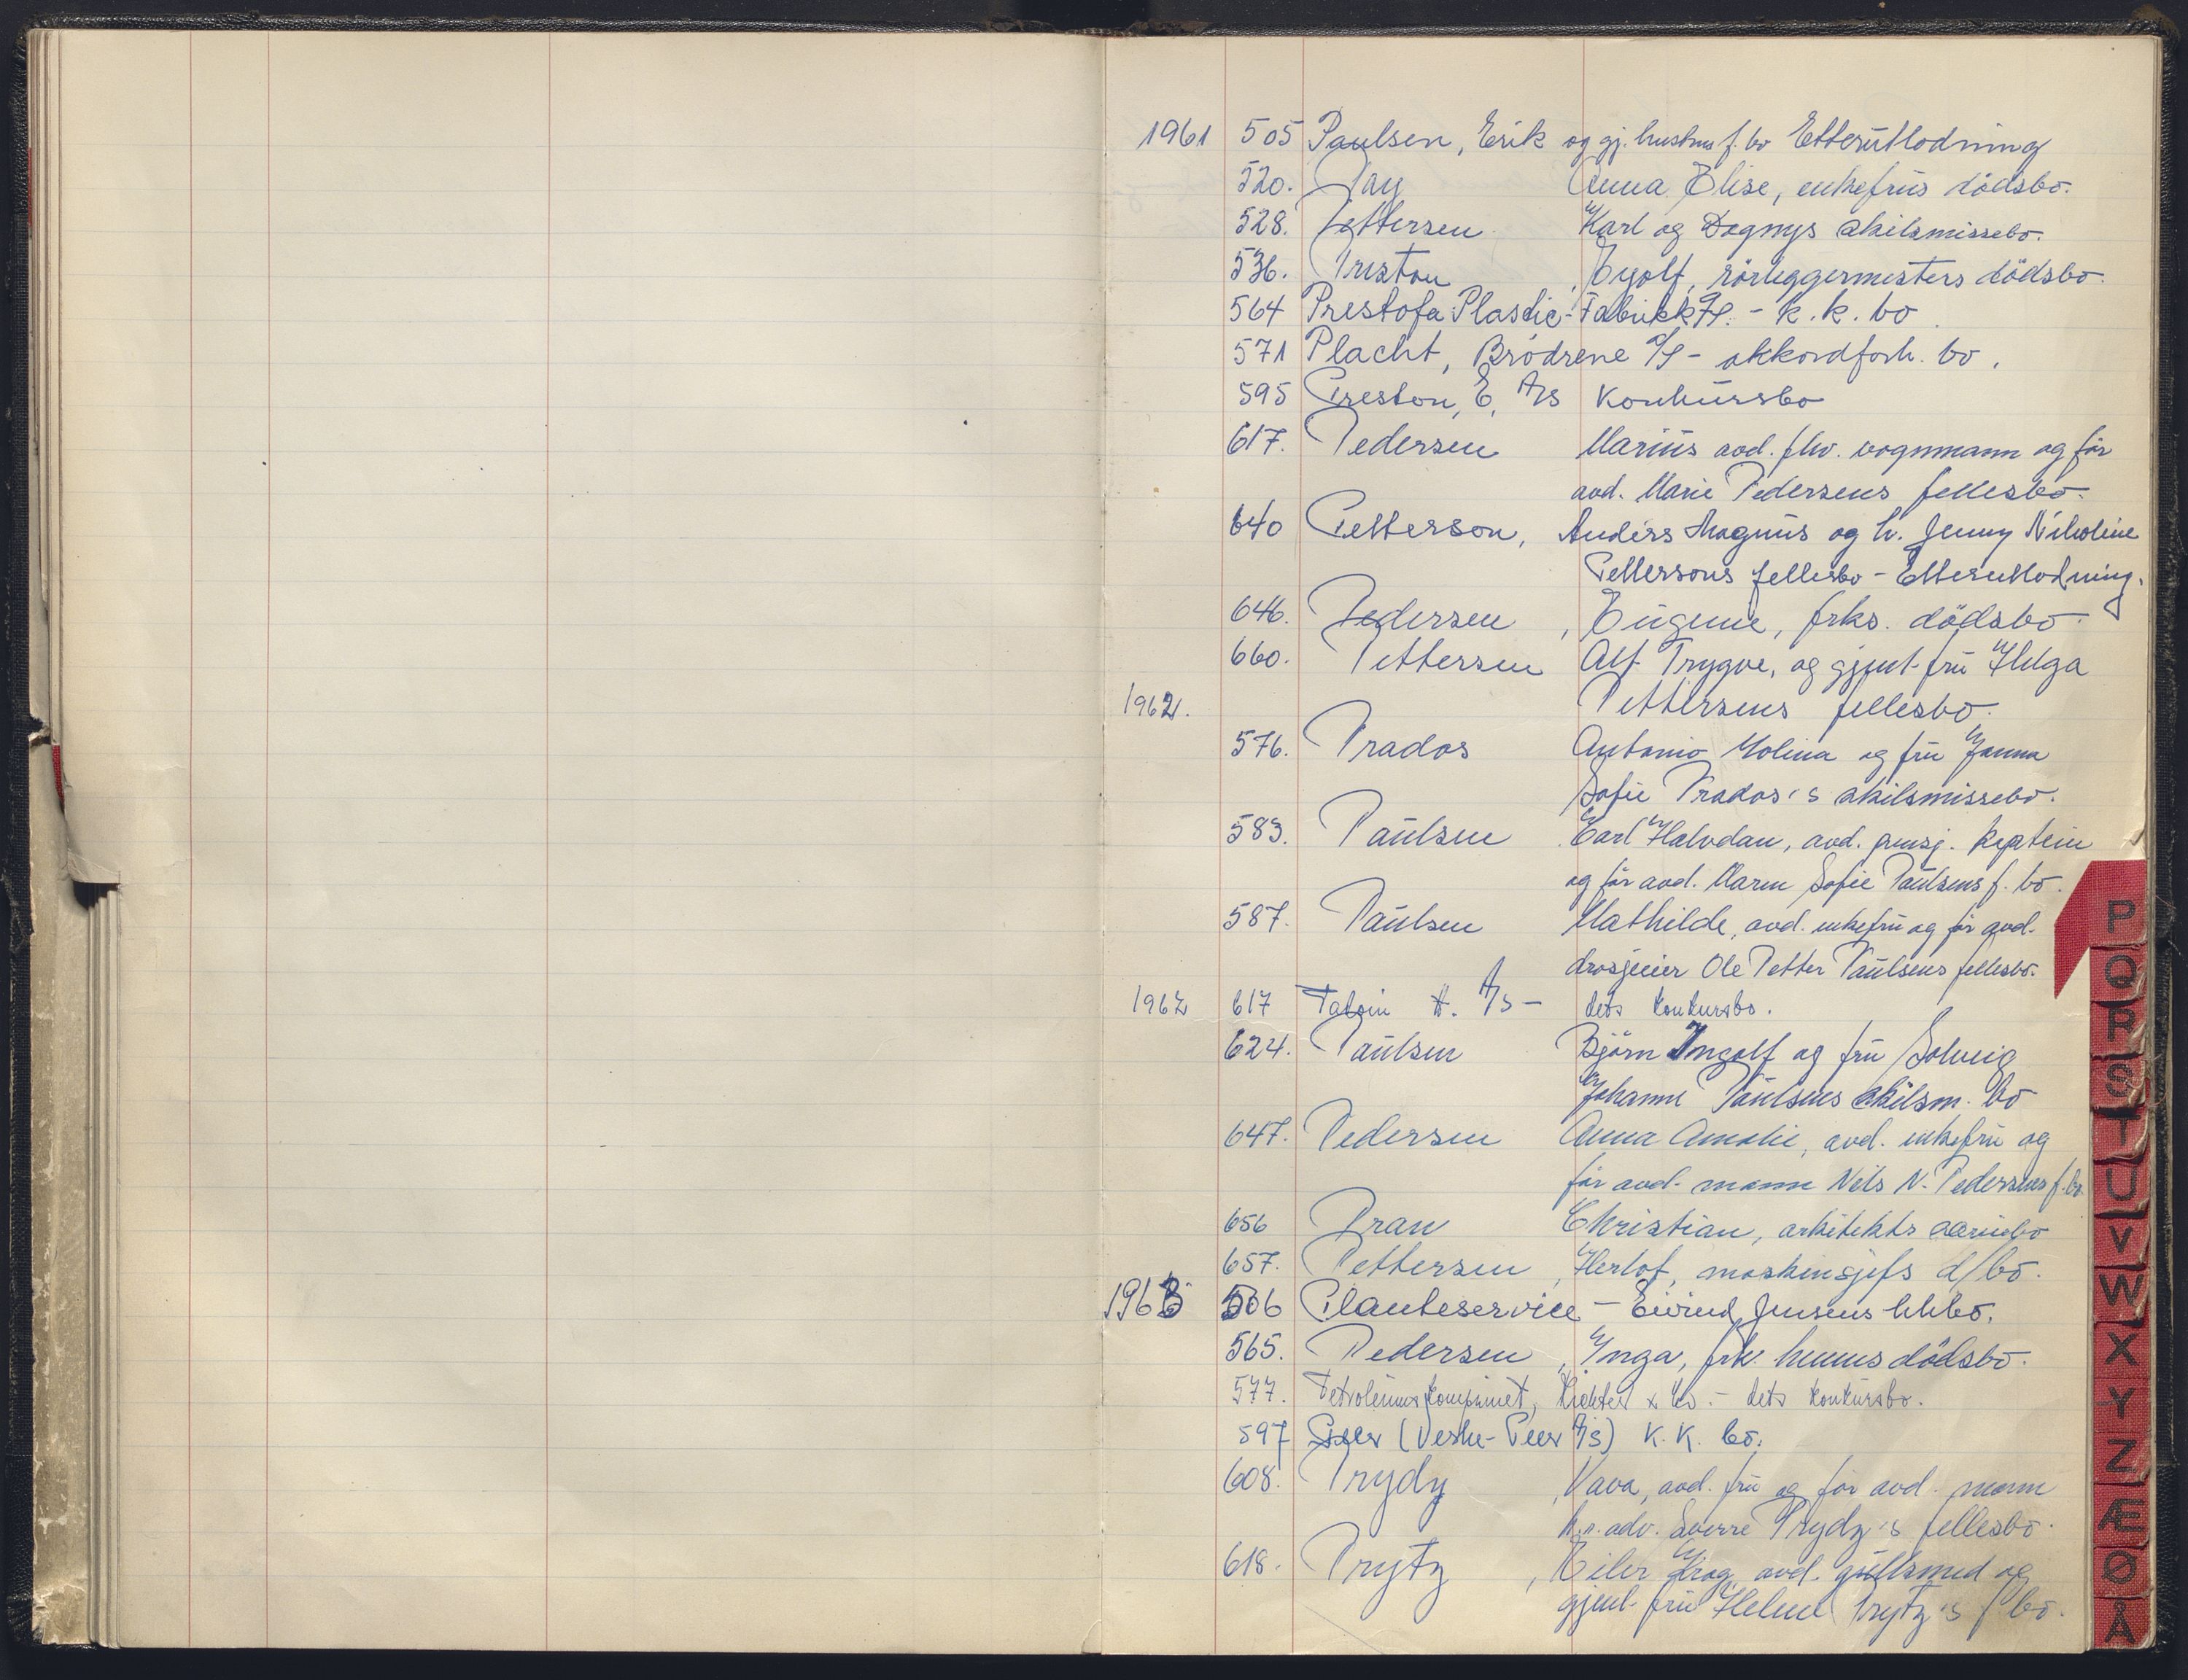 1961 505 Paulsen, Erik og gj. hustrus f. bo Etterutlodning
520. Pay Anna Elise, enkefrus dödsbo.
528. Pettersen Karl og Dagnys skilsmissebo.
536. Preston, Eyolf, rörleggermesters dödsbo.
564 Prestofa Plastic-Fabrikk A/S. - k.k. bo
571 Placht, Brödrene A/S - akkordforh. bo.
595 Preston, E, A/S Konkursbo
617. Pedersen Marius avd. fhv. vognmann og för
avd. Marie Pedersens fellesbo.
640 Petterson, Anders Magnus og h. Jenny Nikoline
Pettersons fellesbo - Etterutlodning.
646. Pedersen, Eugenie, frks. dödsbo.
660. Pettersen Alf Trygve, og gjenl. fru Helga
1962. Pettersens fellesbo.
576. Prados Antonio Molina og fru Janna
Sofie Prados's skilsmissebo.
583. Paulsen Carl Halvdan, avd. pensj. kaptein
og för avd. Maren Sofie Paulsens f. bo.
587. Paulsen Mathilde, avd. enkefru og för avd.
drosjeeier Ole Petter Paulsens fellesbo.
1962 617 H. A/S - dets konkursbo.
624. Paulsen Björn Ingolf og fru Solveig
Johanne Paulsens skilsm. bo
647. Pedersen Anna Amalie, avd. enkefru og
för avd. mann Nils N. Pedersens f. bo.
656 Pran Christian, arkitekts
657. Pettersen, Herlof, maskinsjefs d/bo.
1963 506 Planteservice - Eivind Jensens bo.
565. Pedersen, Inga, frk. hennes dödsbo.
577. Petroleumskompaniet, Richter & Co. - dets konkursbo.
597 Peer (Veske-Peer A/S) K.K. bo.
608. Prydz, Vava, avd. fru og för avd. mann
h.r.adv. Sverre Prydz's fellesbo.
618. Prytz, Eiler Krog avd. gullsmed og
gjenl. fru Helene Prytz's f bo.
P
Q
R
S
T
U
V
W
X
Y
Z
Æ
Ø
Å